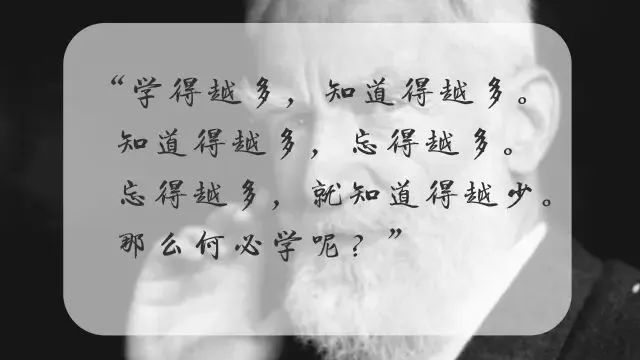 “学得越多，知道得越多。
知道得越多，忘得越多。
忘得越多，就知道得越少。
那么何必学呢？”